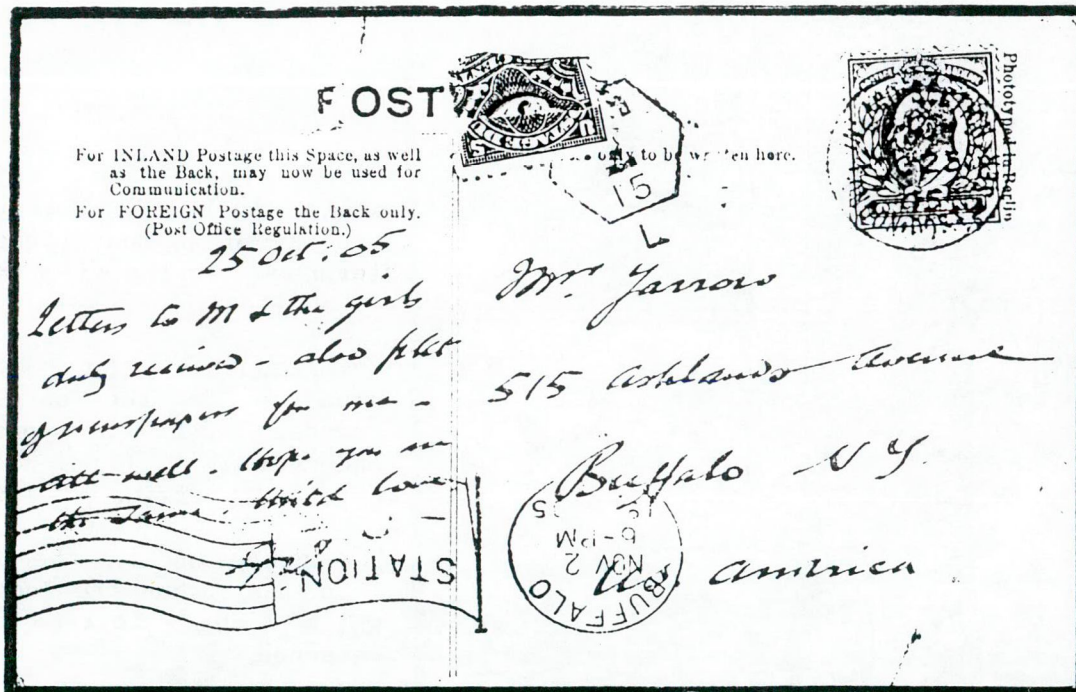 POST
For INLAND Postage this Space, as well
as the Back, may now be used for
Communication.
For FOREIGN Postage the Back only.
(Post Office Regulation.)
only to be written here.
Phototyped in Berlin
U S
15
L
25 Oct: 05
Letters to M & the girls
duly received - also
newspapers for me -
all well. Hope you are
the same. love
Mrs. Yarrow
515 Ashland Avenue
Buffalo N Y
America
STATION
BUFFALO
NOV 2
6-PM